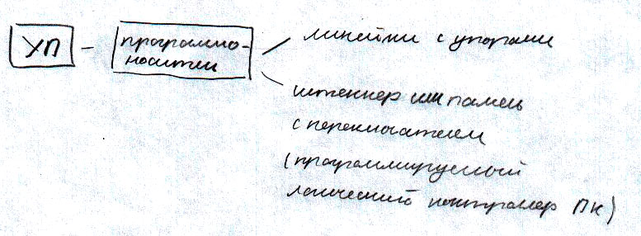 УП – программо-
носители
линейки с упорами
штеккер или панель
с переключателем
(программируемый
логический контроллер ПК)